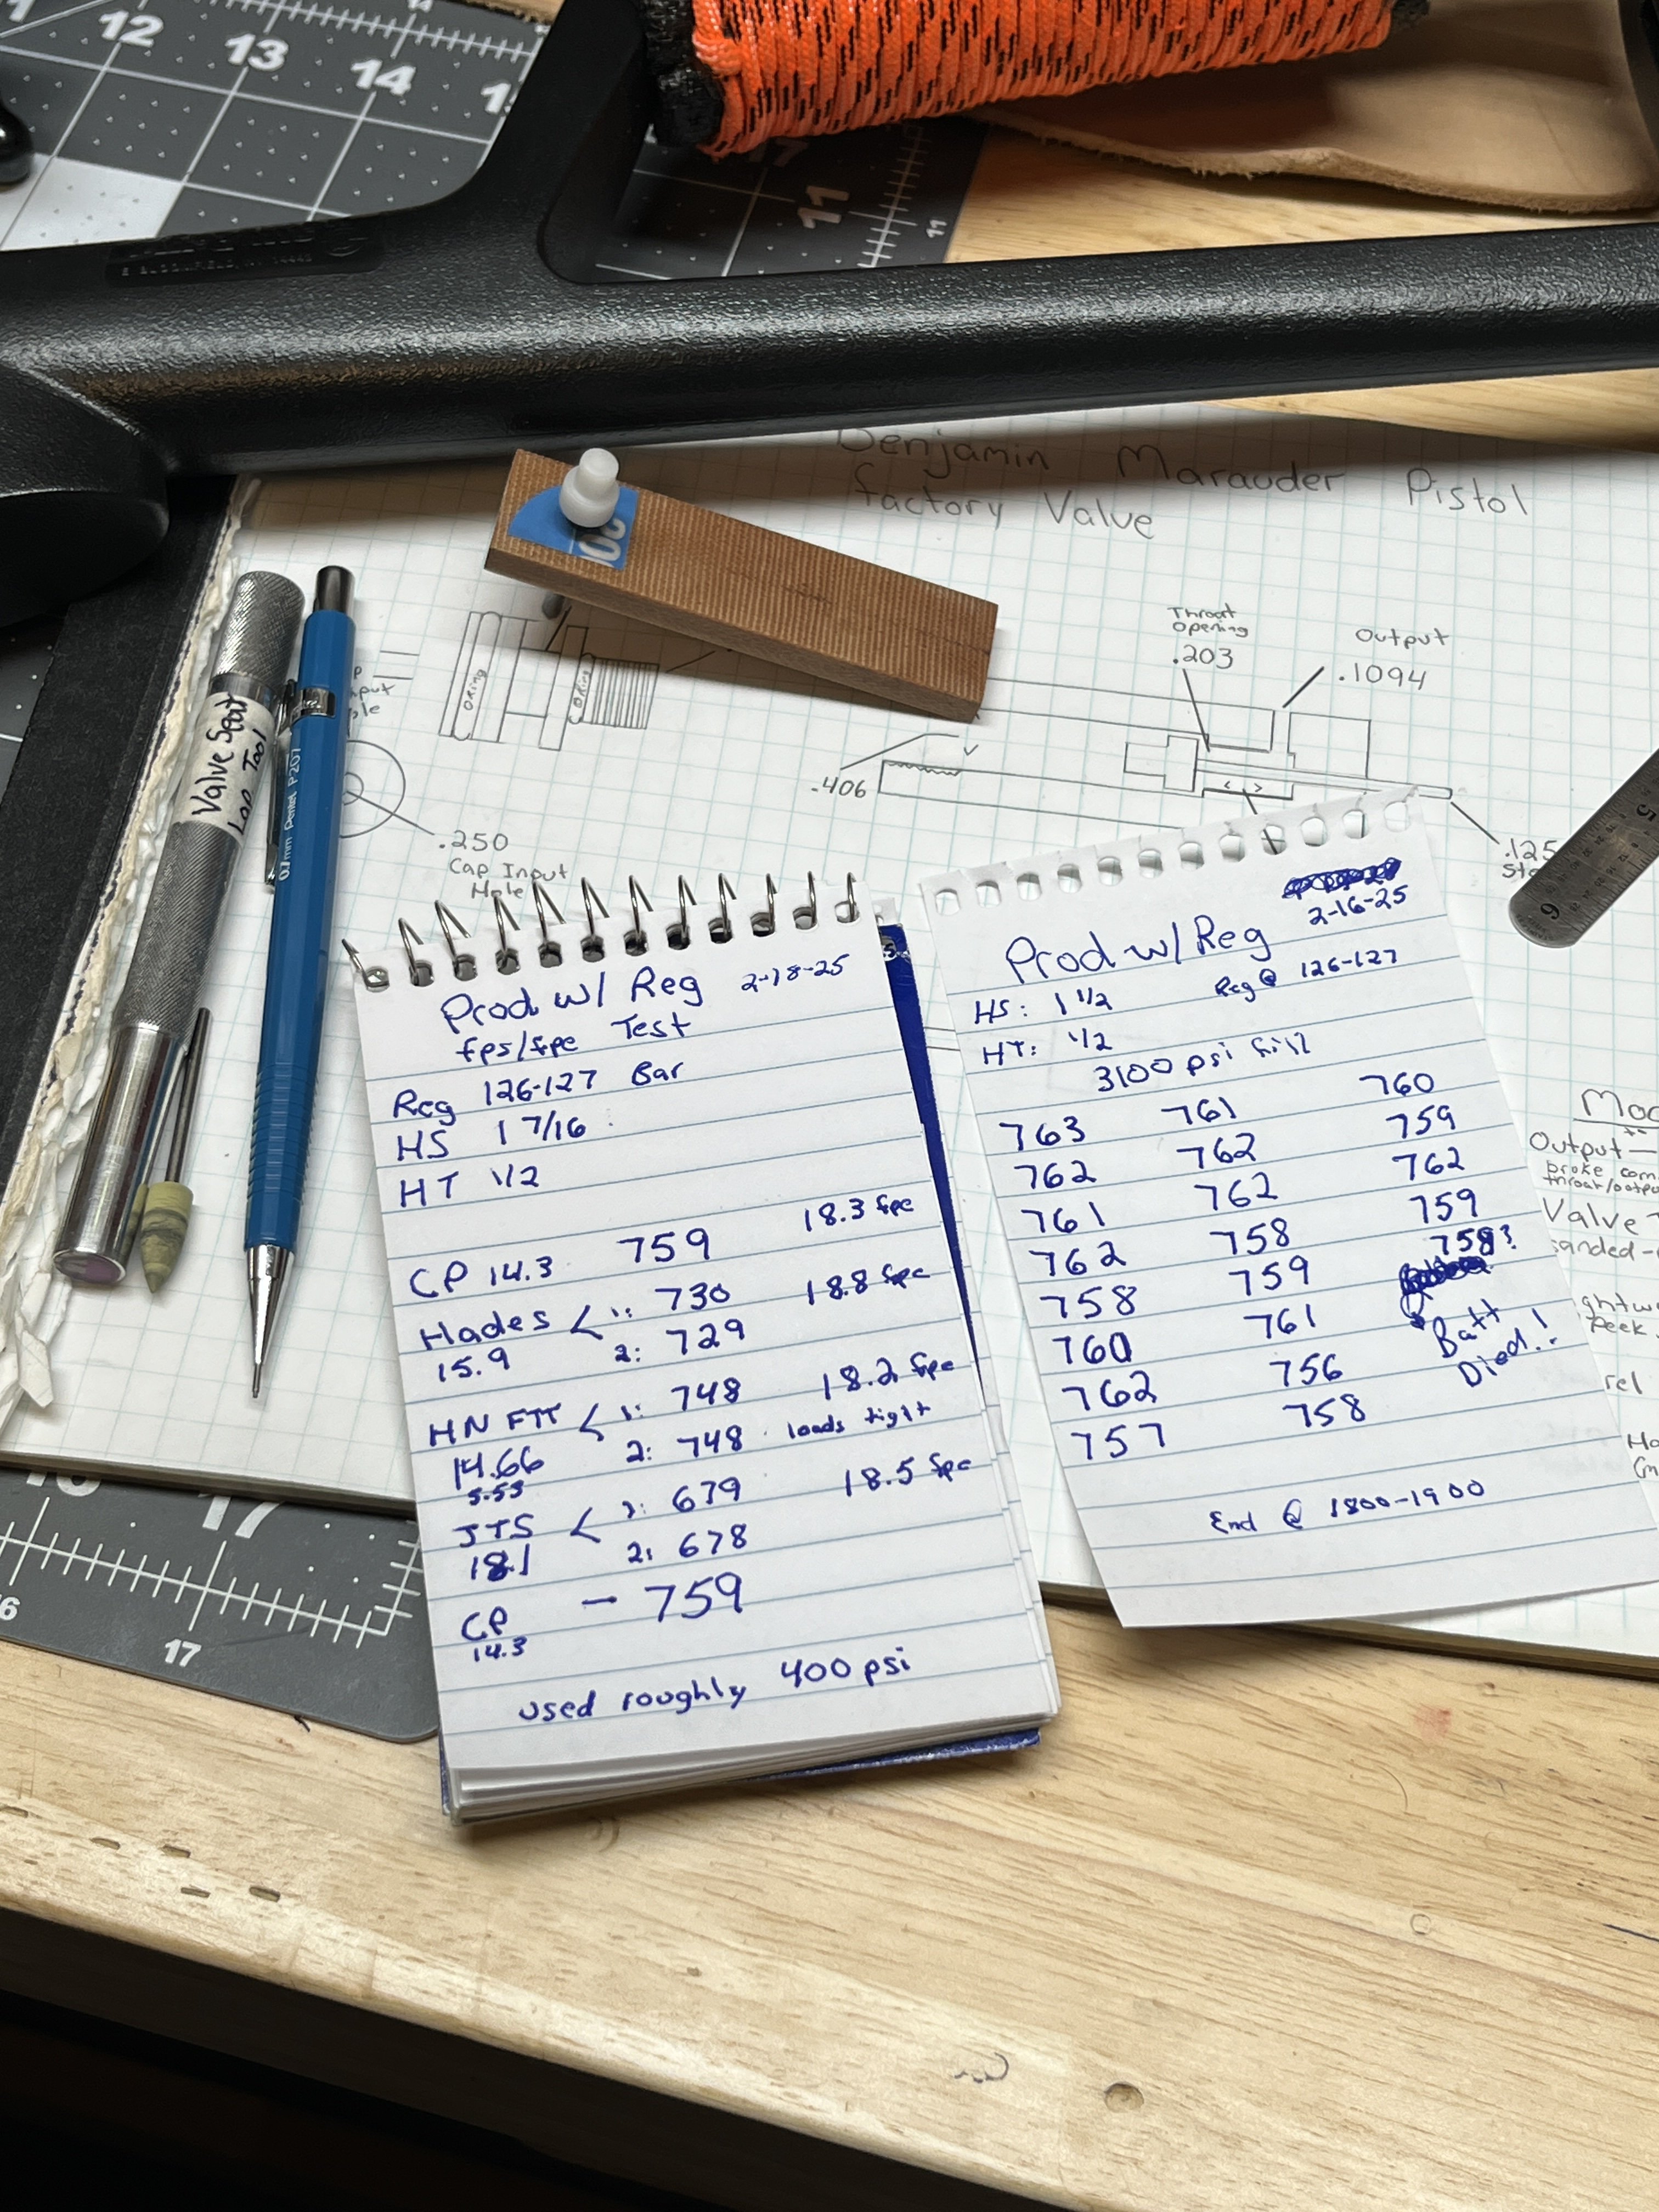 12 13 14
11
11
Benjamin Marauder Pistol
factory Valve
Throat
Opening
.203
Output
.1094
.406
O Ring
O Ring
.250
Cap Input
Hole
.125
Valve Seat
Lap Tool
0.7mm Pentel P207
5
6
Prod w/ Reg 2-18-25
fps/fpe Test
Reg 126-127 Bar
HS 1 7/16
HT 1/2
CP 14.3 759 18.3 fpe
Hades < 1: 730 18.8 fpe
15.9 2: 729
HN FTT < 1: 748 18.2 fpe
14.66 2: 748 loads tight
5.53
JTS < 1: 679 18.5 fpe
18.1 2: 678
CP — 759
14.3
used roughly 400 psi
2-16-25
Prod w/ Reg
HS: 1 1/2 Reg @ 126-127
HT: 1/2
3100 psi fill
763 761 760
762 762 759
761 762 762
762 758 759
758 759 758?
760 761 Batt
762 756 Died!!
757 758
End @ 1800-1900
Output —
Valve
sanded
17
16
17